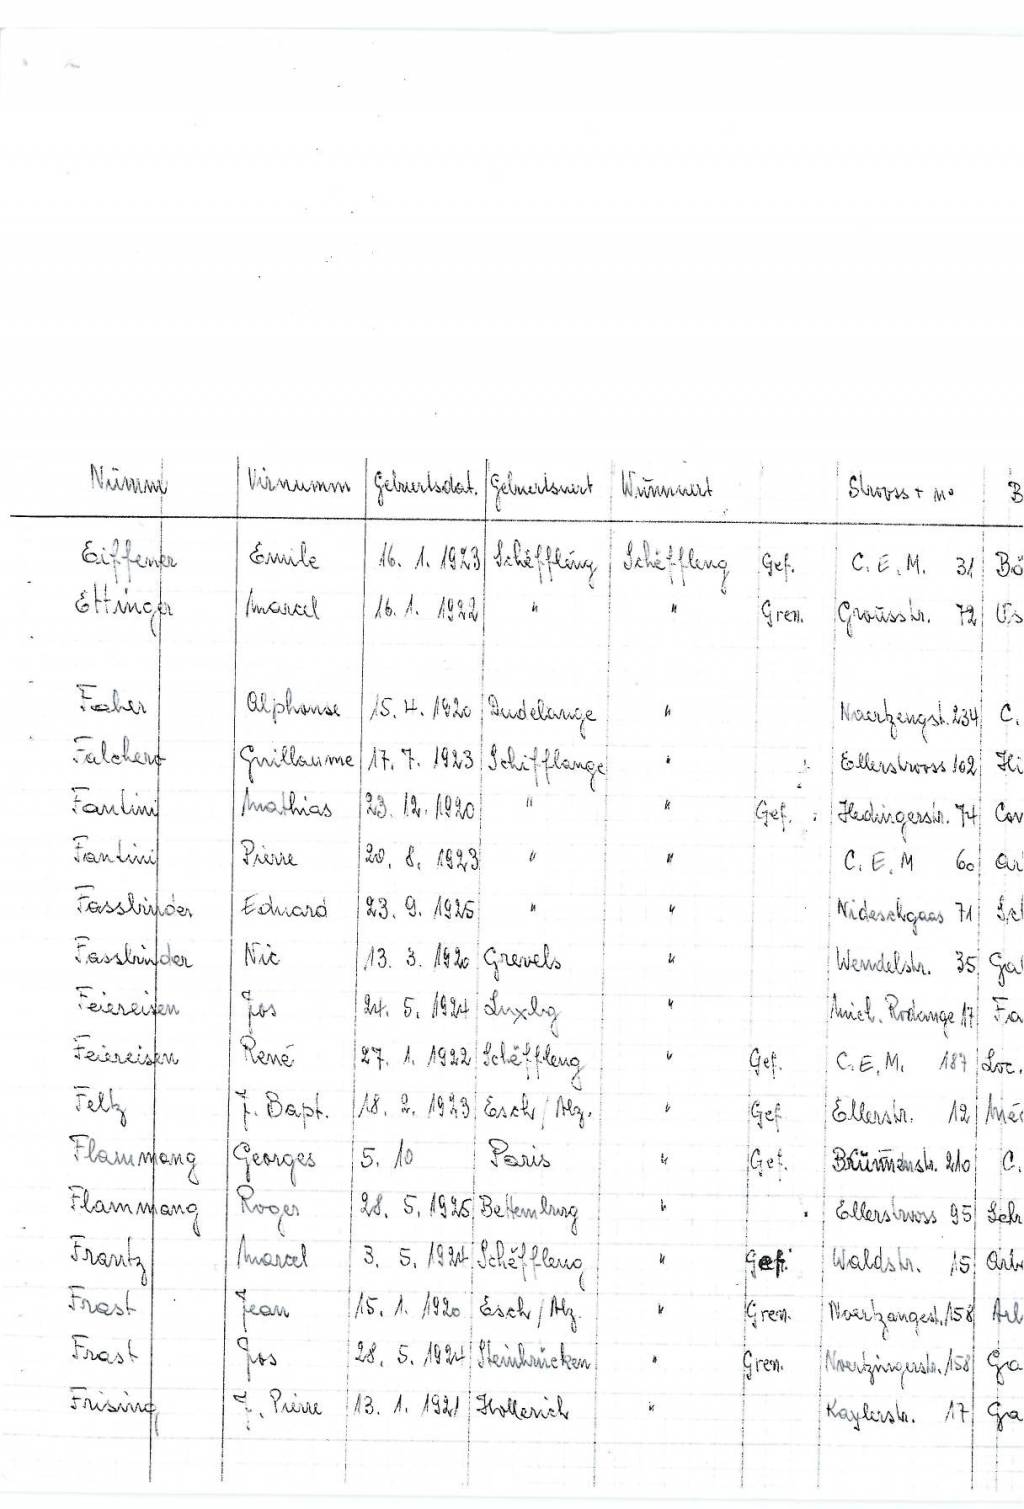 Numm Virnumm Geburtsdat. Geburtsuert Wunnuert Strooss + no B
Eiffener Emile 16. 1. 1923 Schëffleng Schëffleng Gef. C. E. M. 31 Bä
Ettinger Marcel 16. 1. 1922 " " Gren. Grousstr. 72 Us
Faber Alphonse 15. 4. 1920 Dudelange " Noertzengst. 234 C.
Falchero Guillaume 17. 7. 1923 Schifflange " Ellerstrooss 102 Hi
Fantini Mathias 23. 12. 1920 " " Gef. Hedingerstr. 74 Con
Fantini Pierre 20. 8. 1923 " " C. E. M 60 Ar
Fassbinder Eduard 23. 9. 1925 " " Nideschgaas 71 Sch
Fassbinder Nic 13. 3. 1920 Grevels " Wendelstr. 35 Ga
Feiereisen Jos 24. 5. 1924 Luxbg " Mich. Rodange 17 Fa
Feiereisen René 27. 1. 1922 Schëffleng " Gef. C. E. M. 187 Loc.
Feltz J. Bapt. 18. 2. 1923 Esch/Alz. " Gef Ellerstr. 12 Méc
Flammang Georges 5. 10 Paris " Gef. Brunnenstr. 210 C.
Flammang Roger 28. 5. 1925 Bettemburg " Ellerstrooss 95 Schr
Frantz Marcel 3. 5. 1924 Schëffleng " Gef. Waldstr. 15 Arb
Frast Jean 15. 1. 1920 Esch/Alz. " Gren. Noertzangest. 158 Arb
Frast Jos 28. 5. 1924 Steinbrücken " Gren. Noertzingerstr. 158 Ga
Frising J. Pierre 13. 1. 1921 Hollerich " Kaylerstr. 17 Ga